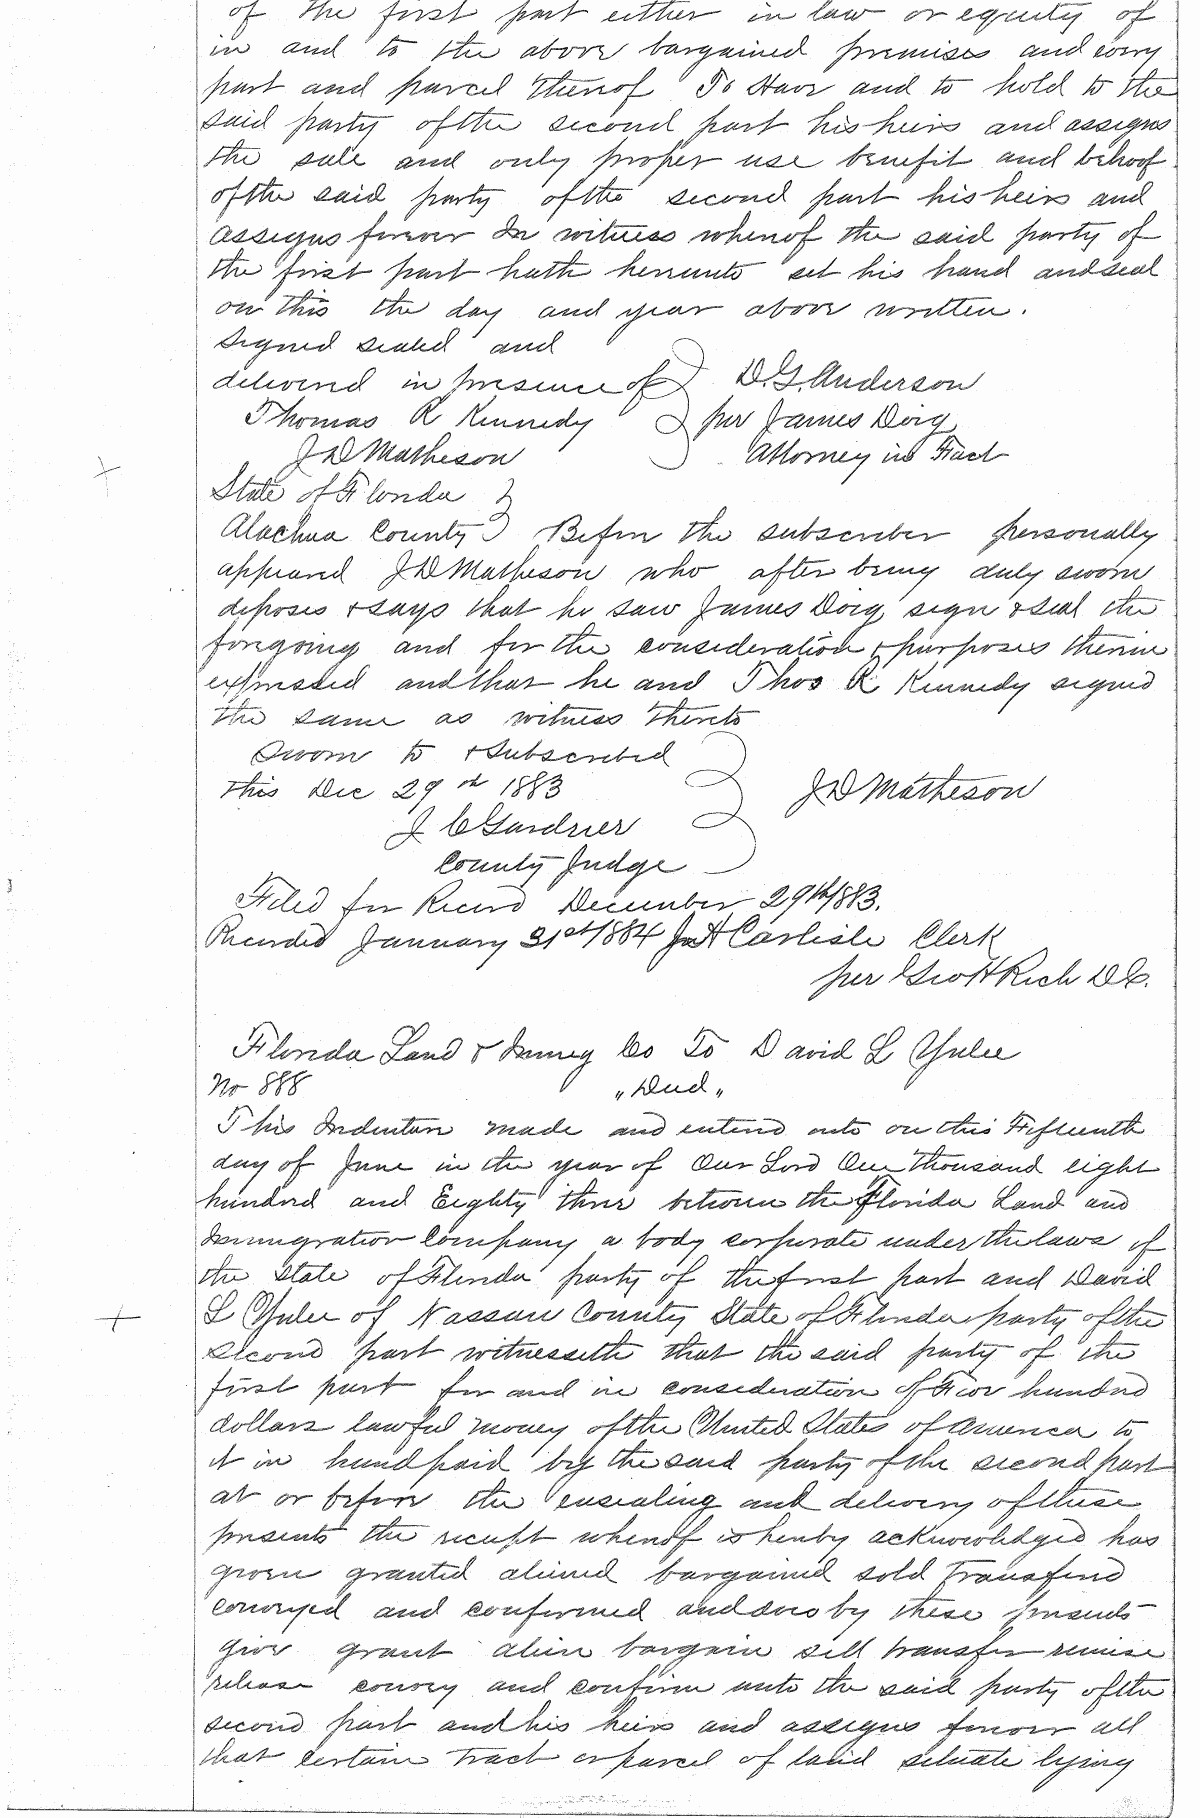 of the first part either in law or equity of
in and to the above bargained premises and every
part and parcel thereof To Have and to hold to the
said party of the second part his heirs and assigns
the sole and only proper use benefit and behoof
of the said party of the second part his heirs and
assigns forever In witness whereof the said party of
the first part hath hereunto set his hand and seal
on this the day and year above written.
Signed sealed and
delivered in presence of } D. G. Anderson
Thomas R Kennedy } per James Doig
J D Matheson Attorney in Fact
State of Florida }
Alachua County } Before the subscriber personally
appeared J D Matheson who after being duly sworn
deposes & says that he saw James Doig sign & seal the
foregoing and for the consideration & purposes therein
expressed and that he and Thos R Kennedy signed
the same as witness thereto
Sworn to & Subscribed
this Dec 29th 1883 } J D Matheson
J C Gardner
County Judge
Filed for Record December 29th/1883.
Recorded January 31st/1884 J A Carlisle Clerk
per Geo H Rich D C.
Florida Land & Immig Co To David L Yulee
No 888 "Deed"
This Indenture made and entered into on this Fifteenth
day of June in the year of Our Lord One thousand eight
hundred and Eighty three between the Florida Land and
Immigration Company a body corporate under the laws of
the State of Florida party of the first part and David
L Yulee of Nassau County State of Florida party of the
second part witnesseth that the said party of the
first part for and in consideration of Five hundred
dollars lawful money of the United States of America to
it in hand paid by the said party of the second part
at or before the ensealing and delivery of these
presents the receipt whereof is hereby acknowledged has
given granted aliened bargained sold transferred
conveyed and confirmed and does by these presents
give grant alien bargain sell transfer remise
release convey and confirm unto the said party of the
second part and his heirs and assigns forever all
that certain tract or parcel of land situate lying